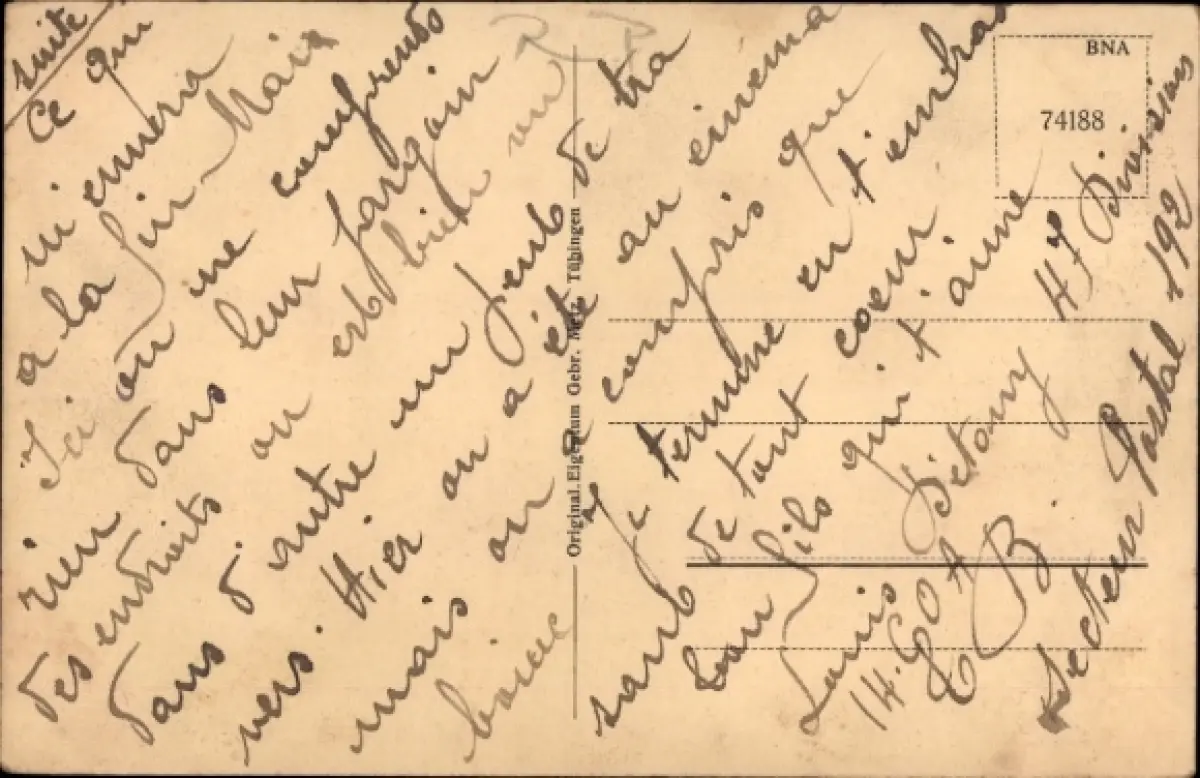 suite
Ce qui
a la fin Mais
Ici on ne comprends
rien dans leur jargoin
des endroits on est bien vu
dans d'autre un peut de tra
vers. Hier on a été au cinema
mais on a compris que
Je termine en t'embras
sant de tout coeur.
ton fils qui t'aime
Louis
14 COA 47 Divisions
B.
Secteur Postal 192
Original.Eigentum Gebr. Metz, Tübingen
BNA
74188